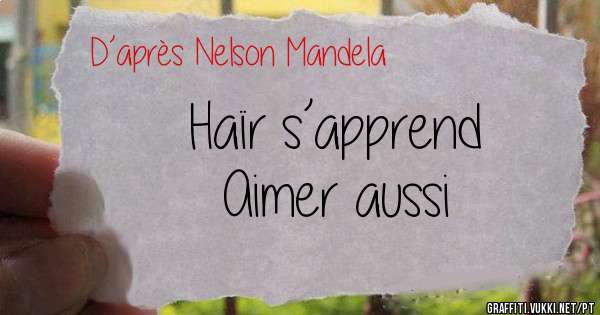 D'après Nelson Mandela
Haïr s'apprend
Aimer aussi
GRAFFITI.VUKKI.NET/PT